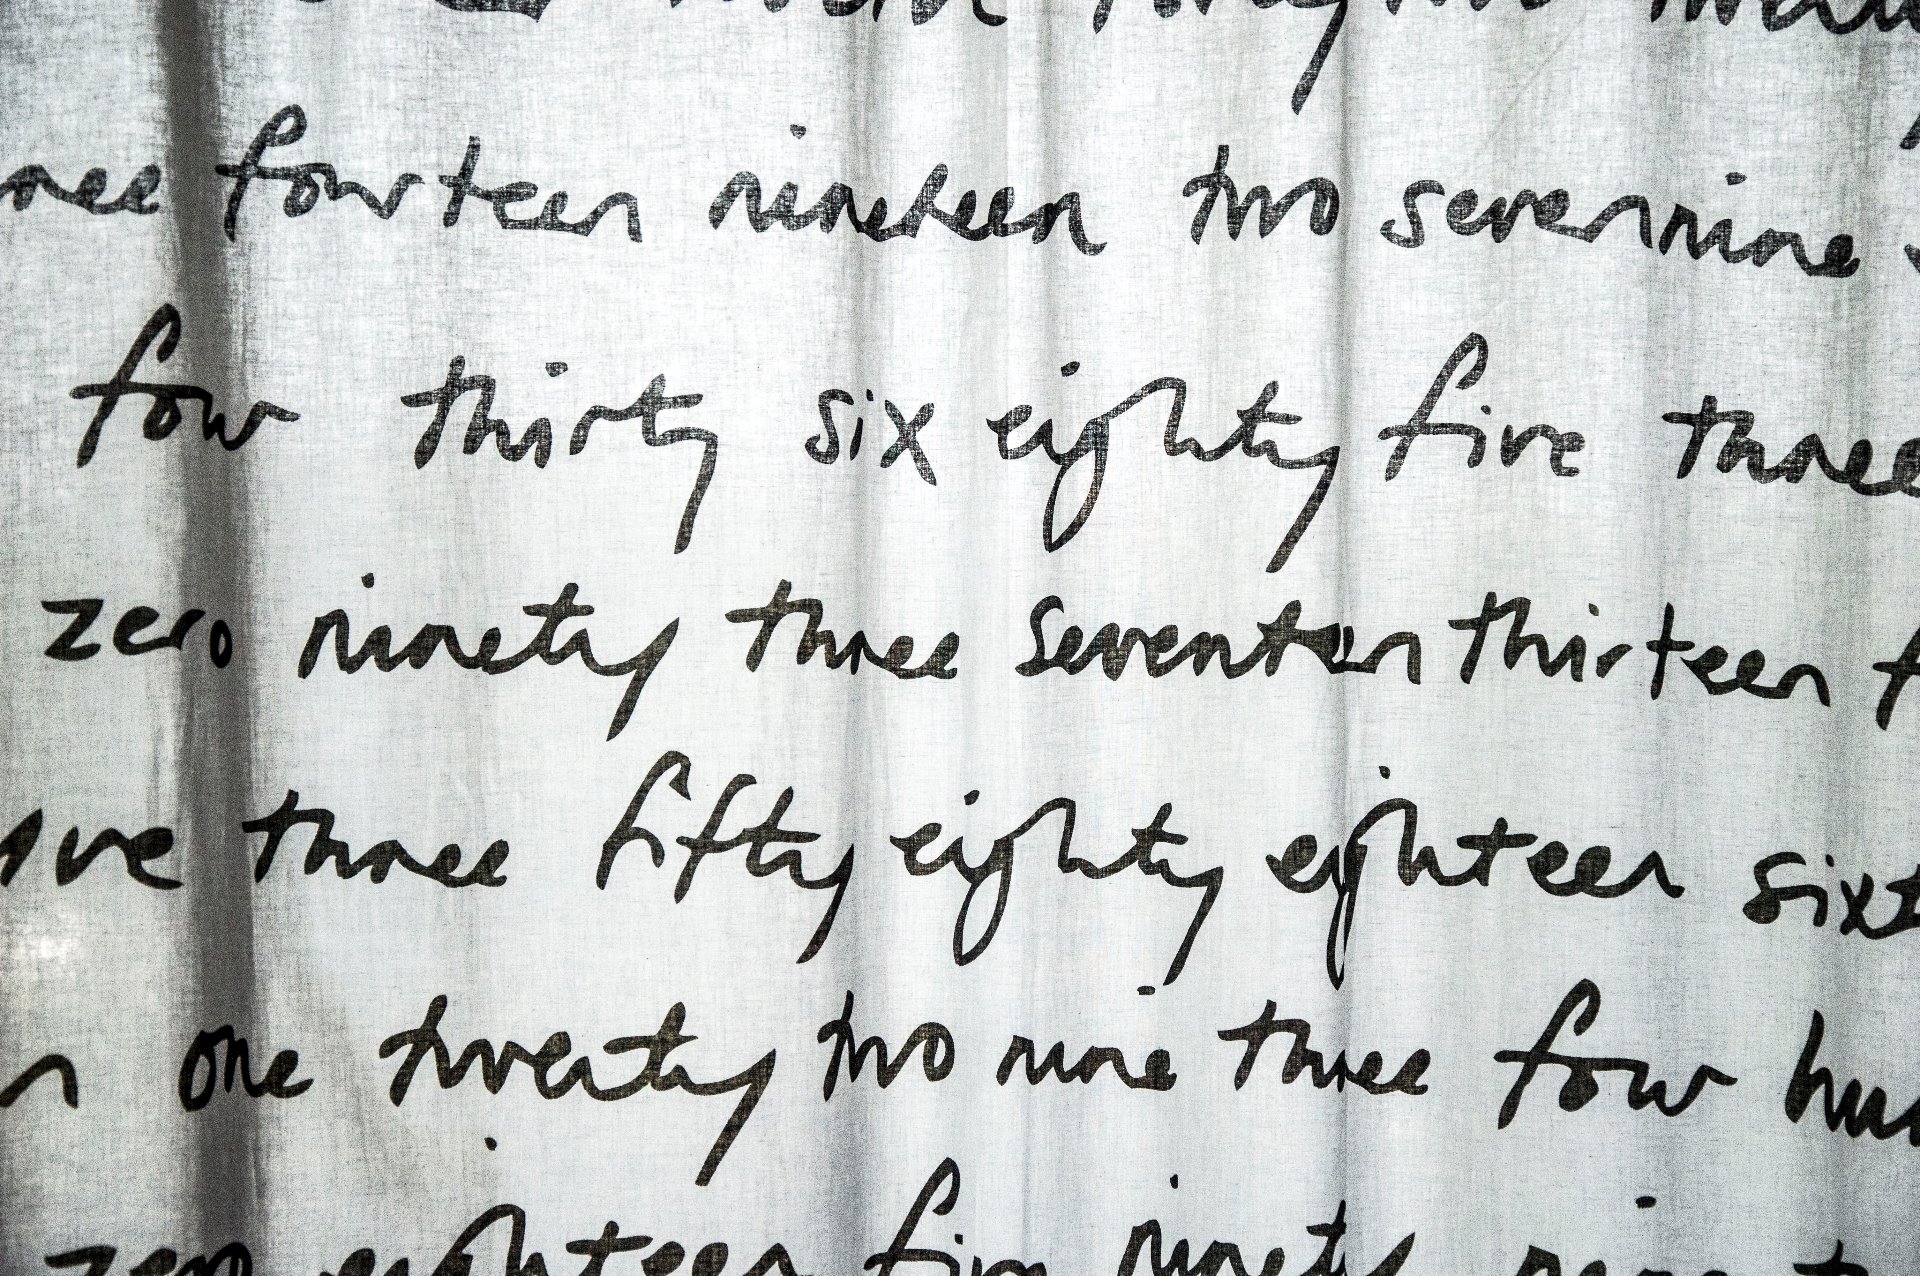 fourteen nineteen two seven nine
four thirty six eighty five three
zero ninety three seventeen thirteen
three fifty eighty eighteen
one twenty two nine three four
zero eighteen five ninety nine